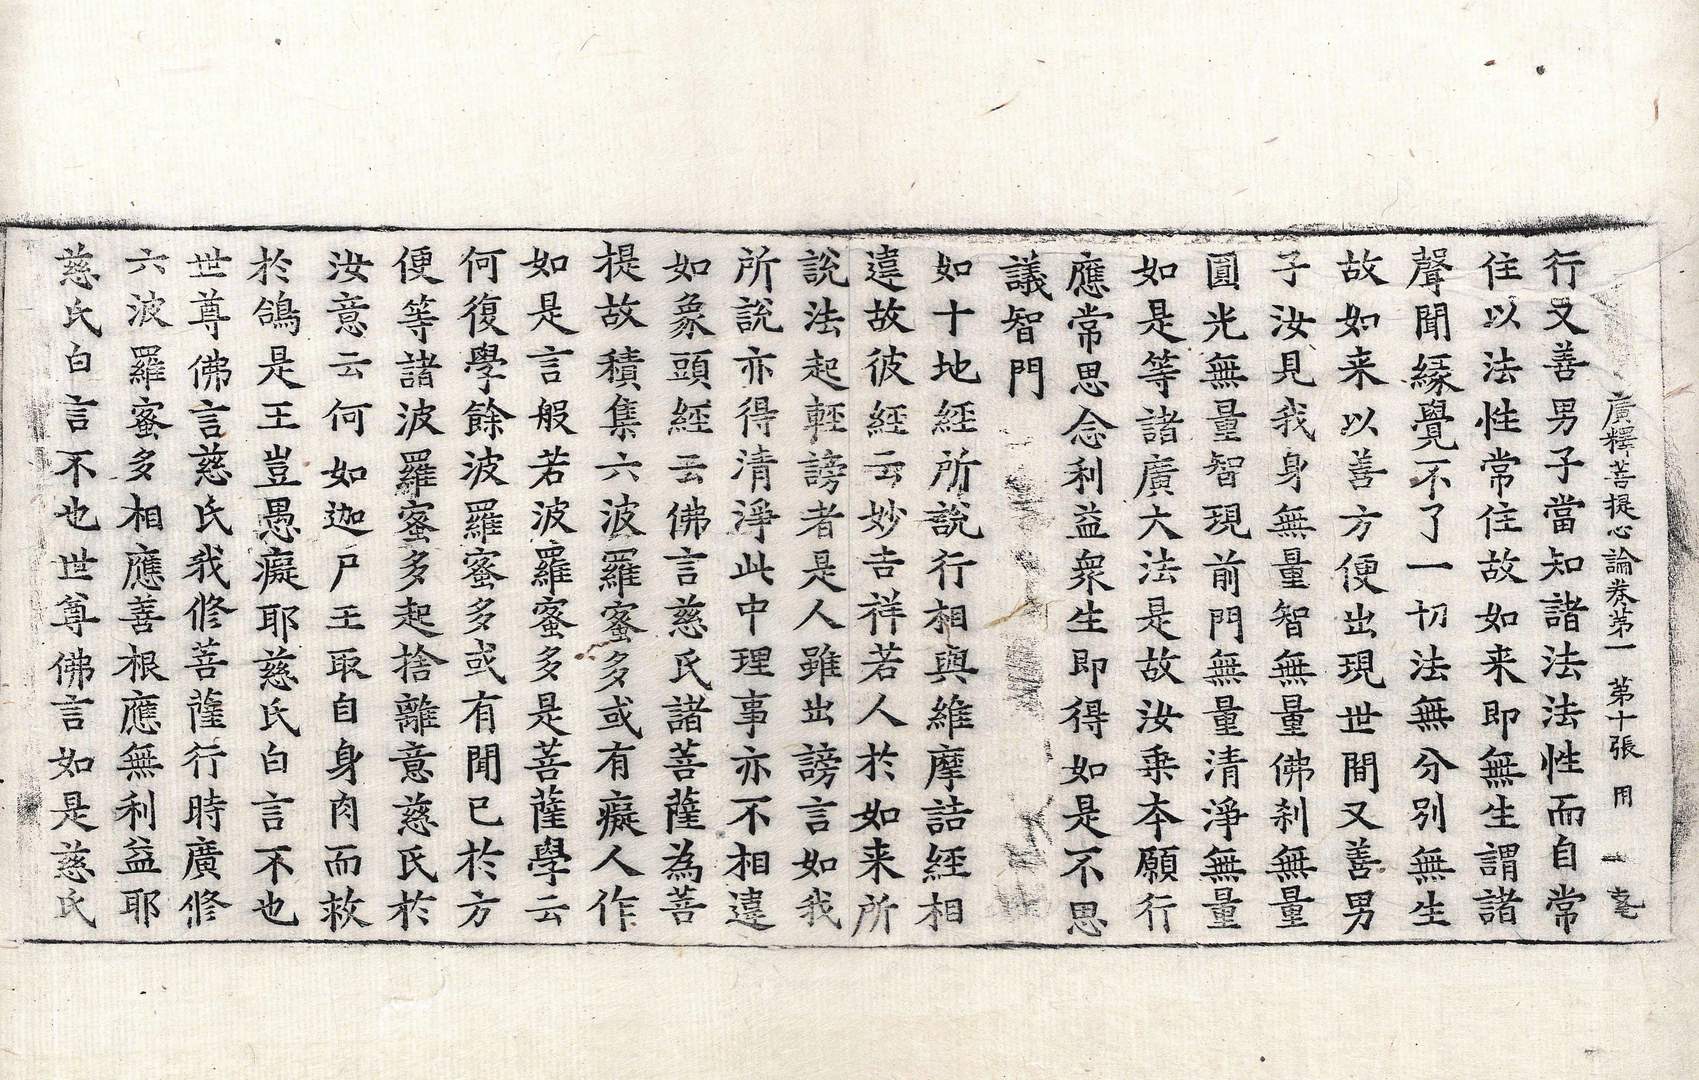 廣釋菩提心論卷第一　第十張　用
行又善男子當知諸法法性而自常
住以法性常住故如来即無生謂諸
聲聞緣覺不了一切法無分別無生
故如来以善方便出現世間又善男
子汝見我身無量智無量佛剎無量
圓光無量智現前門無量清淨無量
如是等諸廣大法是故汝乗本願行
應常思念利益衆生即得如是不思
議智門
如十地經所說行相與維摩詰經相
違故彼經云妙吉祥若人於如来所
說法起輕謗者是人雖出謗言如我
所說亦得清淨此中理事亦不相違
如象頭經云佛言慈氏諸菩薩為菩
提故積集六波羅蜜多或有癡人作
如是言般若波羅蜜多是菩薩學云
何復學餘波羅蜜多或有聞已於方
便等諸波羅蜜多起捨離意慈氏於
汝意云何如迦尸王取自身肉而救
於鴿是王豈愚癡耶慈氏白言不也
世尊佛言慈氏我修菩薩行時廣修
六波羅蜜多相應善根應無利益耶
慈氏白言不也世尊佛言如是慈氏